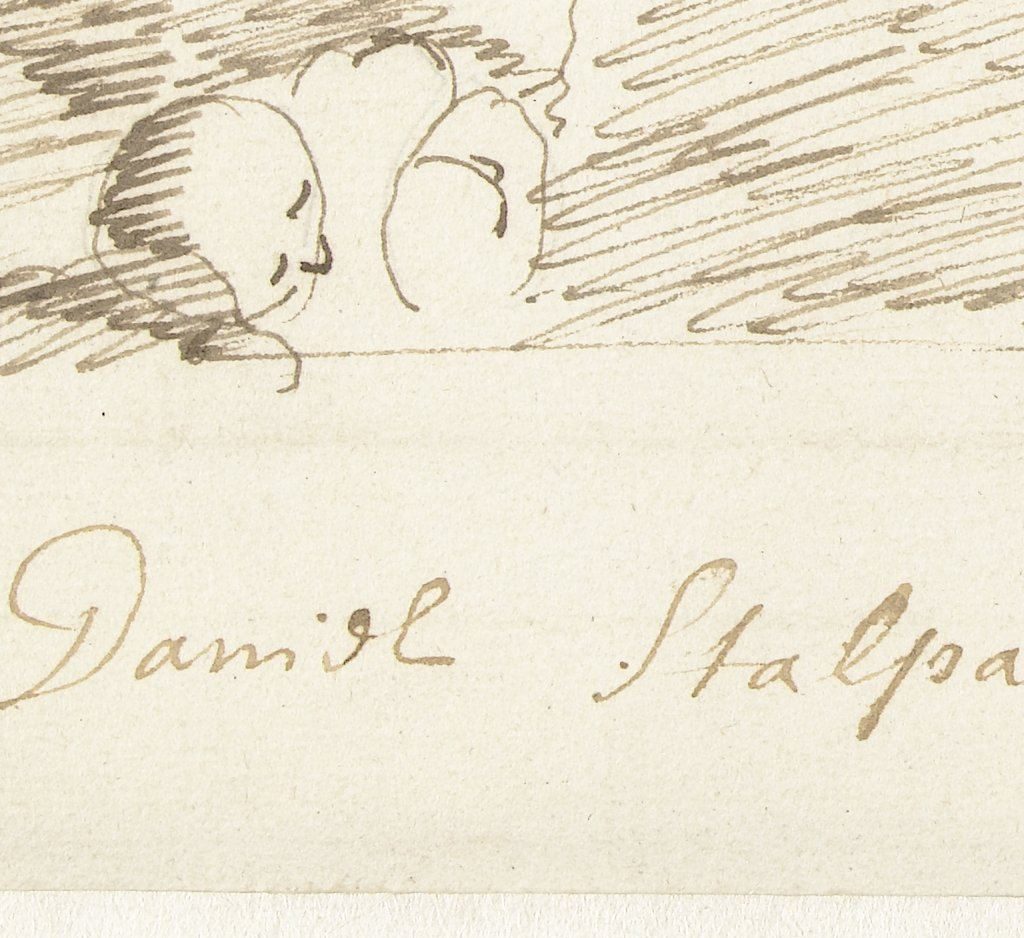 Daniel Stalpa